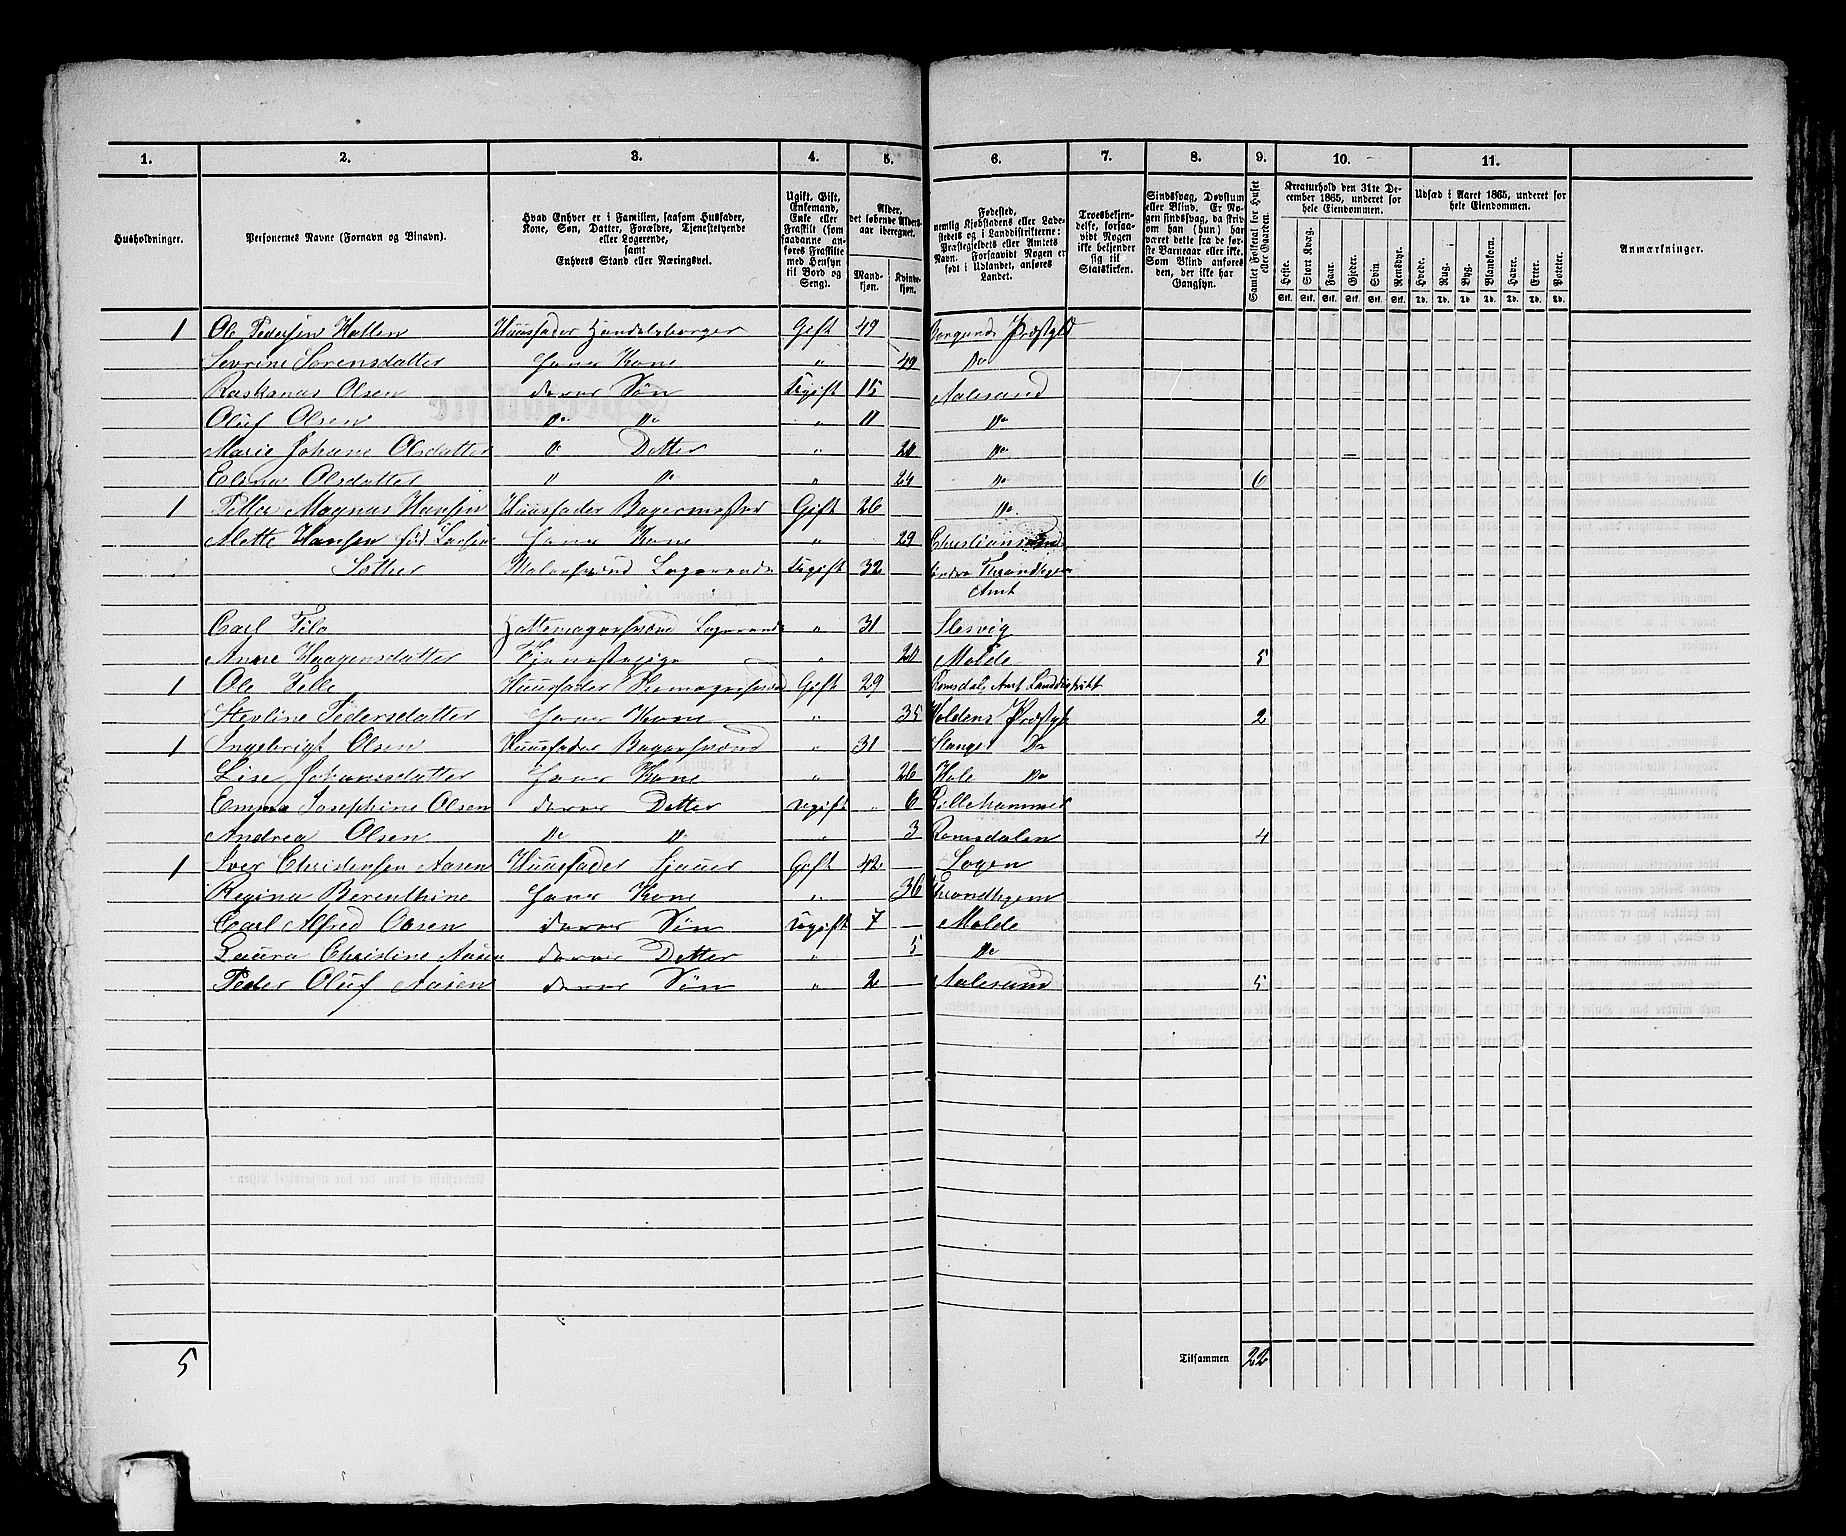 1. 2. 3. 4. 5. 6. 7. 8. 9. 10. 11.
Husholdninger.
Personernes Navne (Fornavn og Binavn).
Hvad Enhver er i Familien, saasom Husfader,
Kone, Søn, Datter, Forældre, Tjenestetyende
eller Logerende,
samt
Enhvers Stand eller Næringsvei.
Ugift, Gift,
Enkemand,
Enke eller
Fraskilt (som
saadanne an-
føres Fraskilte
med Hensyn
til Bord og
Seng).
Alder,
det løbende Alders-
aar iberegnet.
Mand-
kjøn.
Kvinde-
kjøn.
Fødested,
nemlig Kjøbstadens eller Lade-
stedets og i Landdistrikterne:
Præstegjeldets eller Amtets
Navn. Forsaavidt Nogen er
født i Udlandet, anføres
Landet.
Troesbekjen-
delse, forsaa-
vidt Nogen
ikke bekjender
sig til
Statskirken.
Sindssvag, Døvstum
eller Blind. Er No-
gen sindssvag, da skriv
om han (hun) har
været dette fra de før-
ste Barneaar eller ikke.
Som Blind anføres
den, der ikke har
Gangsyn.
Samlet Folketal for Huset
eller Gaarden.
Kreaturhold den 31te De-
cember 1865, underet for
hele Eiendommen.
Heste. Stort Kvæg. Faar. Gjeder. Svin Rensdyr.
Stk. Stk. Stk. Stk. Stk. Stk.
Udsæd i Aaret 1865, underet for
hele Eiendommen.
Hvede. Rug. Byg. Blandkorn. Havre. Erter. Poteter.
Td. Td. Td. Td. Td. Td. Td.
Anmærkninger.
1 Ole Pedersen Hollen Huusfader Handelsborger Gift 49 Borgunds Præstgld
Sevrine Sørensdatter Hans Kone " 49 Do
Rasmus Olsen deres Søn Ugift 15 Aalesund
Oluf Olsen Do Do " 11 Do
Marie Johane Olsdatter D Datter " 20 Do
Elena Olsdatter " Do " 24 Do 6
1 Magnus Hansen Huusfader Bagermester Gift 26 Do
Mette Hansen fød Larsen Hans Kone " 29 Christiansund
Sother Malersvend Logerende Ugift 32 Søndre Throndhjems
Amt
Carl Filo Hattemagersvend Logerende " 31 Slesvig
Anne Haagensdatter Tjenestepige " 20 Molde 5
1 Ole Felle Huusfader Skomagersvend Gift 29 Romsdals Amt Landdistrikt
Pedersdatter Hans Kone " 35 Holdens Præstgj 2
1 Ingebrigt Olsen Huusfader Bagersvend " 31 Stange Do
Lise Johansdatter Hans Kone " 26 Hole Do
Emma Josephine Olsen deres Datter Ugift " 6 Lillehammer
Andrea Olsen Do Do " 3 Romsdalen 4
1 Iver Christensen Aasen Huusfader Gift 42 Sogen
Regina Berenthine Hans Kone " 36 Throndhjem
Carl Alfred Olsen deres Søn Ugift 7 Molde
Laura Christine Aasen deres Datter " 5 Do
Peder Oluf Aasen deres Søn " 2 Aalesund 5
5 Tilsammen 22